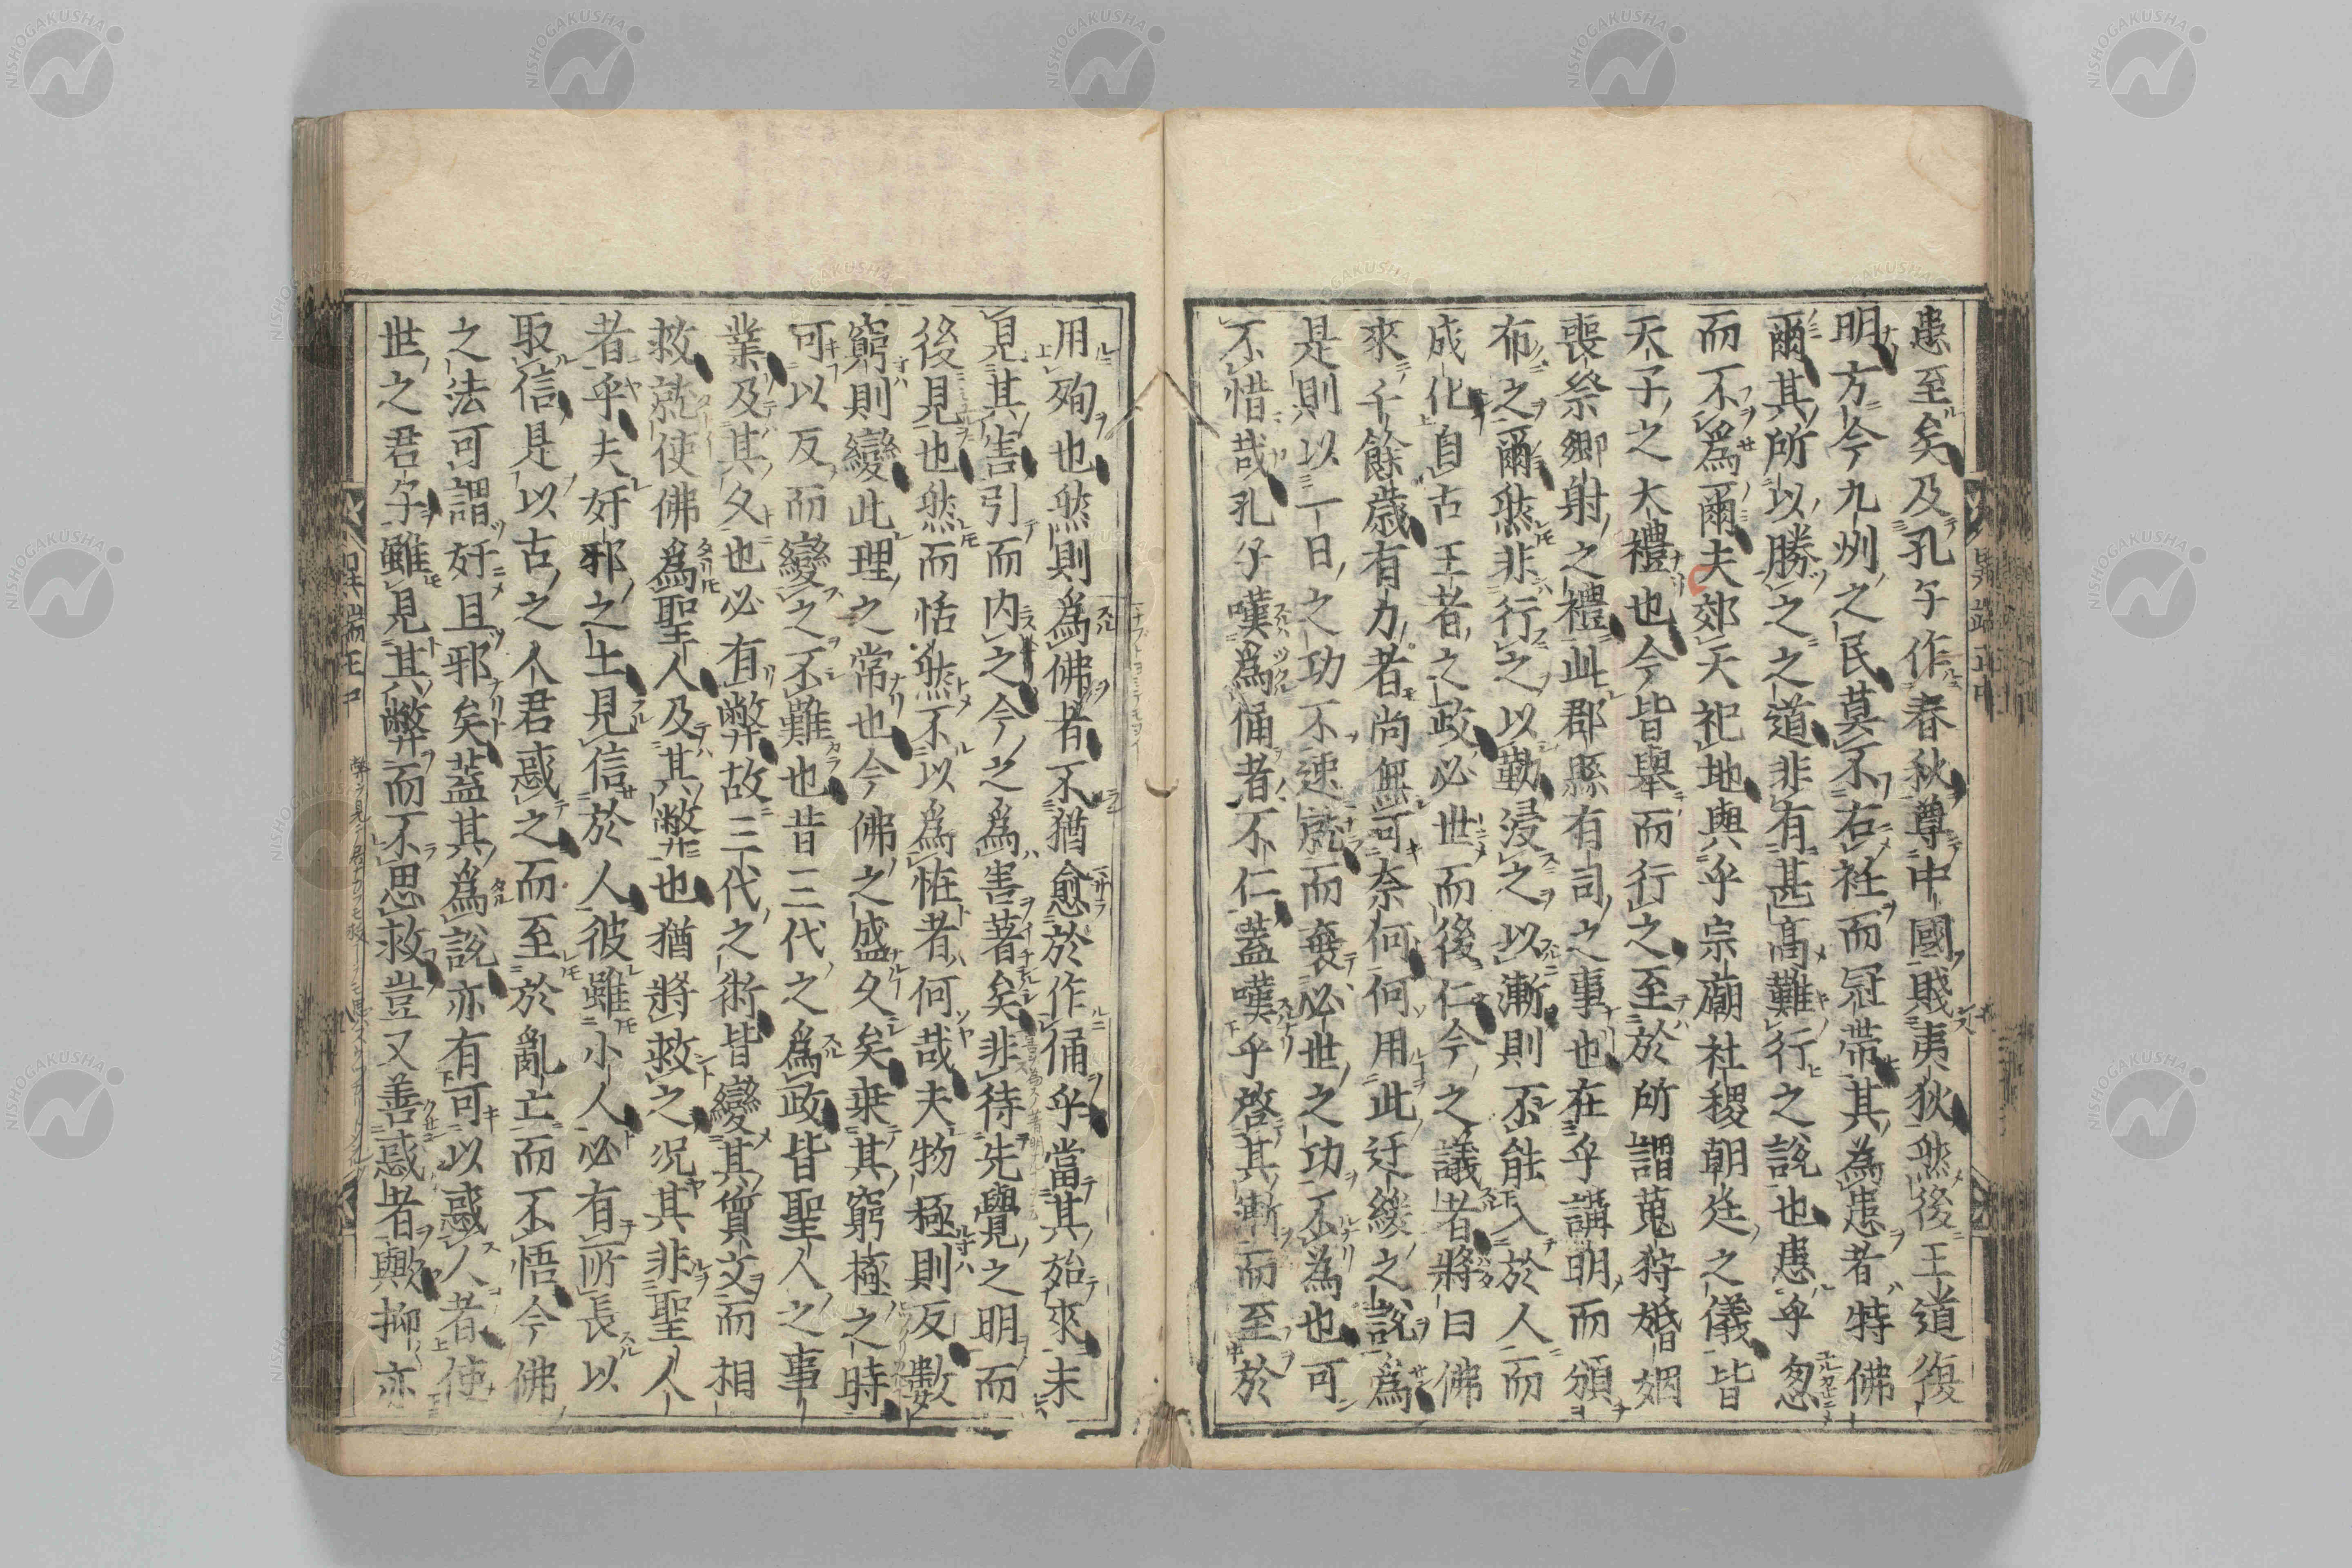 患至矣及孔子作春秋尊中國賤夷狄然後王道復
明方今九州之民莫不右衽而冠帶其為患者特佛
爾其所以勝之之道非有甚高難行之說也患乎忽
而不爲爾夫郊天祀地與乎宗廟社稷朝廷之儀皆
天子之大禮也今皆舉而行之至於所謂蒐狩婚姻
喪祭鄉射之禮此郡縣有司之事也在乎講明而頒
布之爾然非行之以勤浸之以漸則不能入於人而
成化自古王者之政必世而後仁今之議者將曰佛
來千餘歲有力者尚無可奈何何用此迂緩之說爲
是則以一日之功不速就而棄必世之功不為也可
不惜哉孔子嘆爲俑者不仁蓋嘆乎啓其漸而至於
用殉也然則為佛者不猶愈於作俑乎當其始來未
見其害引而內之今之為害著矣非待先覺之明而
後見也然而恬然不以爲怪者何哉夫物極則反數
窮則變此理之常也今佛之盛久矣乘其窮極之時
可以反而變之不難也昔三代之爲政皆聖人之事
業及其久也必有弊故三代之術皆變其質文而相
救就使佛爲聖人及其弊也猶將救之況其非聖人
者乎夫奸邪之士見信於人彼雖小人必有所長以
取信是以古之人君惑之而至於亂亡而不悟今佛
之法可謂奸且邪矣蓋其爲說亦有可以惑人者使
世之君子雖見其弊而不思救豈又善惑者歟抑亦
異端正中
NISHOGAKUSHA